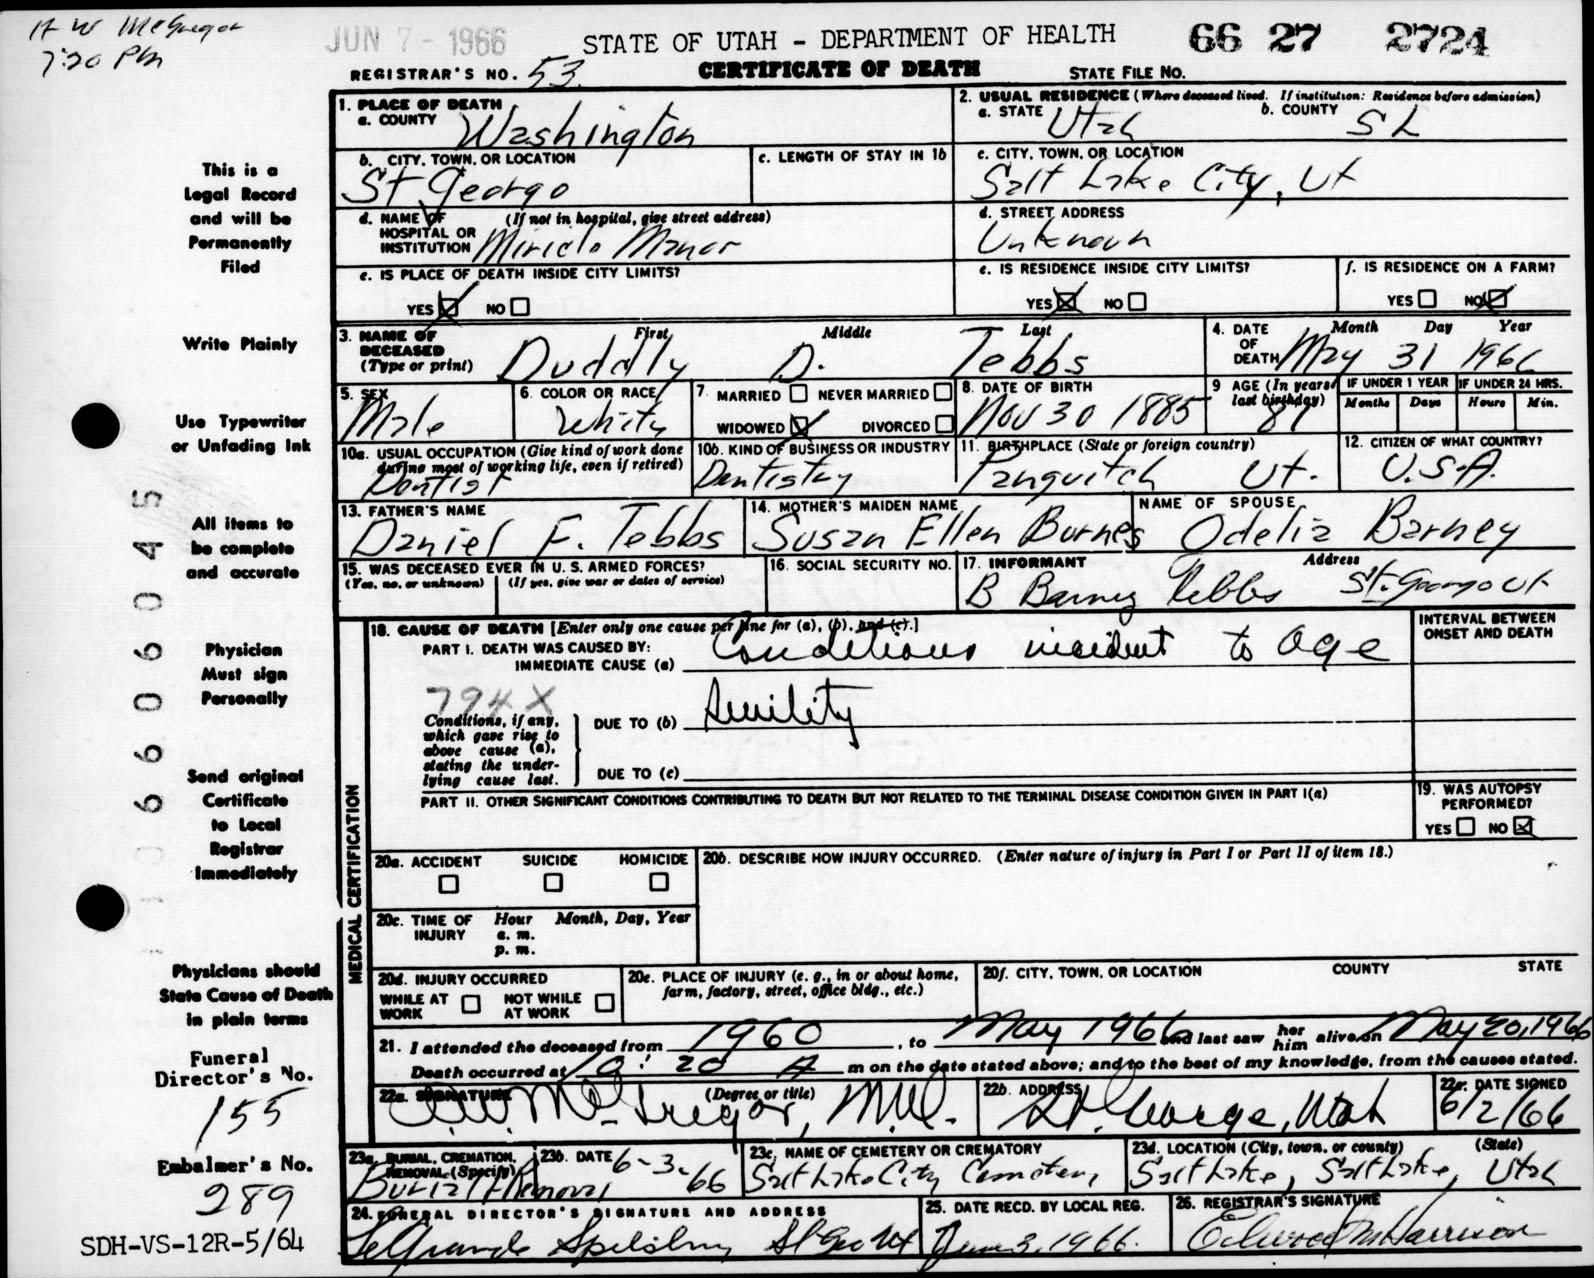 A W McGregor
7:20 PM
JUN 7 - 1966
STATE OF UTAH - DEPARTMENT OF HEALTH
66 27 2724
REGISTRAR'S NO. 53
CERTIFICATE OF DEATH
STATE FILE NO.
This is a
Legal Record
and will be
Permanently
Filed
Write Plainly
Use Typewriter
or Unfading Ink
All items to
be complete
and accurate
Physician
Must sign
Personally
Send original
Certificate
to Local
Registrar
Immediately
Physicians should
State Cause of Death
in plain terms
Funeral
Director's No.
155
Embalmer's No.
289
SDH-VS-12R-5/64
0660045
1. PLACE OF DEATH
a. COUNTY Washington
2. USUAL RESIDENCE (Where deceased lived. If institution: Residence before admission)
a. STATE Utah b. COUNTY S L
b. CITY, TOWN, OR LOCATION
St George
c. LENGTH OF STAY IN 1b
c. CITY, TOWN, OR LOCATION
Salt Lake City, Ut
d. NAME OF (If not in hospital, give street address)
HOSPITAL OR
INSTITUTION Manor
d. STREET ADDRESS
Unknown
e. IS PLACE OF DEATH INSIDE CITY LIMITS?
YES NO
e. IS RESIDENCE INSIDE CITY LIMITS?
YES NO
f. IS RESIDENCE ON A FARM?
YES NO
3. NAME OF First Middle Last
DECEASED
(Type or print) Duddly D. Tebbs
4. DATE Month Day Year
OF
DEATH May 31 1966
5. SEX
Male
6. COLOR OR RACE
White
7. MARRIED NEVER MARRIED
WIDOWED DIVORCED
8. DATE OF BIRTH
Nov 30 1885
9 AGE (In years
last birthday)
81
IF UNDER 1 YEAR IF UNDER 24 HRS.
Months Days Hours Min.
10a. USUAL OCCUPATION (Give kind of work done
during most of working life, even if retired)
Dentist
10b. KIND OF BUSINESS OR INDUSTRY
Dentistry
11. BIRTHPLACE (State or foreign country)
Panguitch Ut.
12. CITIZEN OF WHAT COUNTRY?
U.S.A.
13. FATHER'S NAME
Daniel F. Tebbs
14. MOTHER'S MAIDEN NAME
Susan Ellen Burnes
NAME OF SPOUSE
Odelia Barney
15. WAS DECEASED EVER IN U. S. ARMED FORCES?
(Yes, no, or unknown) (If yes, give war or dates of service)
16. SOCIAL SECURITY NO.
17. INFORMANT Address
B Barney Tebbs St. George Ut
MEDICAL CERTIFICATION
18. CAUSE OF DEATH [Enter only one cause per line for (a), (b), and (c).]
PART I. DEATH WAS CAUSED BY:
IMMEDIATE CAUSE (a) Conditions incident to age
INTERVAL BETWEEN
ONSET AND DEATH
794X
Conditions, if any,
which gave rise to
above cause (a),
stating the under-
lying cause last.
DUE TO (b) Senility
DUE TO (c)
PART II. OTHER SIGNIFICANT CONDITIONS CONTRIBUTING TO DEATH BUT NOT RELATED TO THE TERMINAL DISEASE CONDITION GIVEN IN PART I(a)
19. WAS AUTOPSY
PERFORMED?
YES NO
20a. ACCIDENT SUICIDE HOMICIDE
20b. DESCRIBE HOW INJURY OCCURRED. (Enter nature of injury in Part I or Part II of item 18.)
20c. TIME OF Hour Month, Day, Year
INJURY a. m.
p. m.
20d. INJURY OCCURRED
WHILE AT NOT WHILE
WORK AT WORK
20e. PLACE OF INJURY (e. g., in or about home,
farm, factory, street, office bldg., etc.)
20f. CITY, TOWN, OR LOCATION COUNTY STATE
21. I attended the deceased from 1960, to May 1966 and last saw her him alive on May 20, 1966
Death occurred at 10:20 A m on the date stated above; and to the best of my knowledge, from the causes stated.
22a. SIGNATURE (Degree or title)
A.W. McGregor, M.D.
22b. ADDRESS
St. George, Utah
22c. DATE SIGNED
6/2/66
23a. BURIAL, CREMATION,
REMOVAL (Specify)
Burial Removal
23b. DATE 6-3-66
23c. NAME OF CEMETERY OR CREMATORY
Salt Lake City Cemetery
23d. LOCATION (City, town, or county) (State)
Salt Lake, Salt Lake, Utah
24. FUNERAL DIRECTOR'S SIGNATURE AND ADDRESS
LeGrande Spilsbury St Geo Ut
25. DATE RECD. BY LOCAL REG.
June 3, 1966.
26. REGISTRAR'S SIGNATURE
Harrison